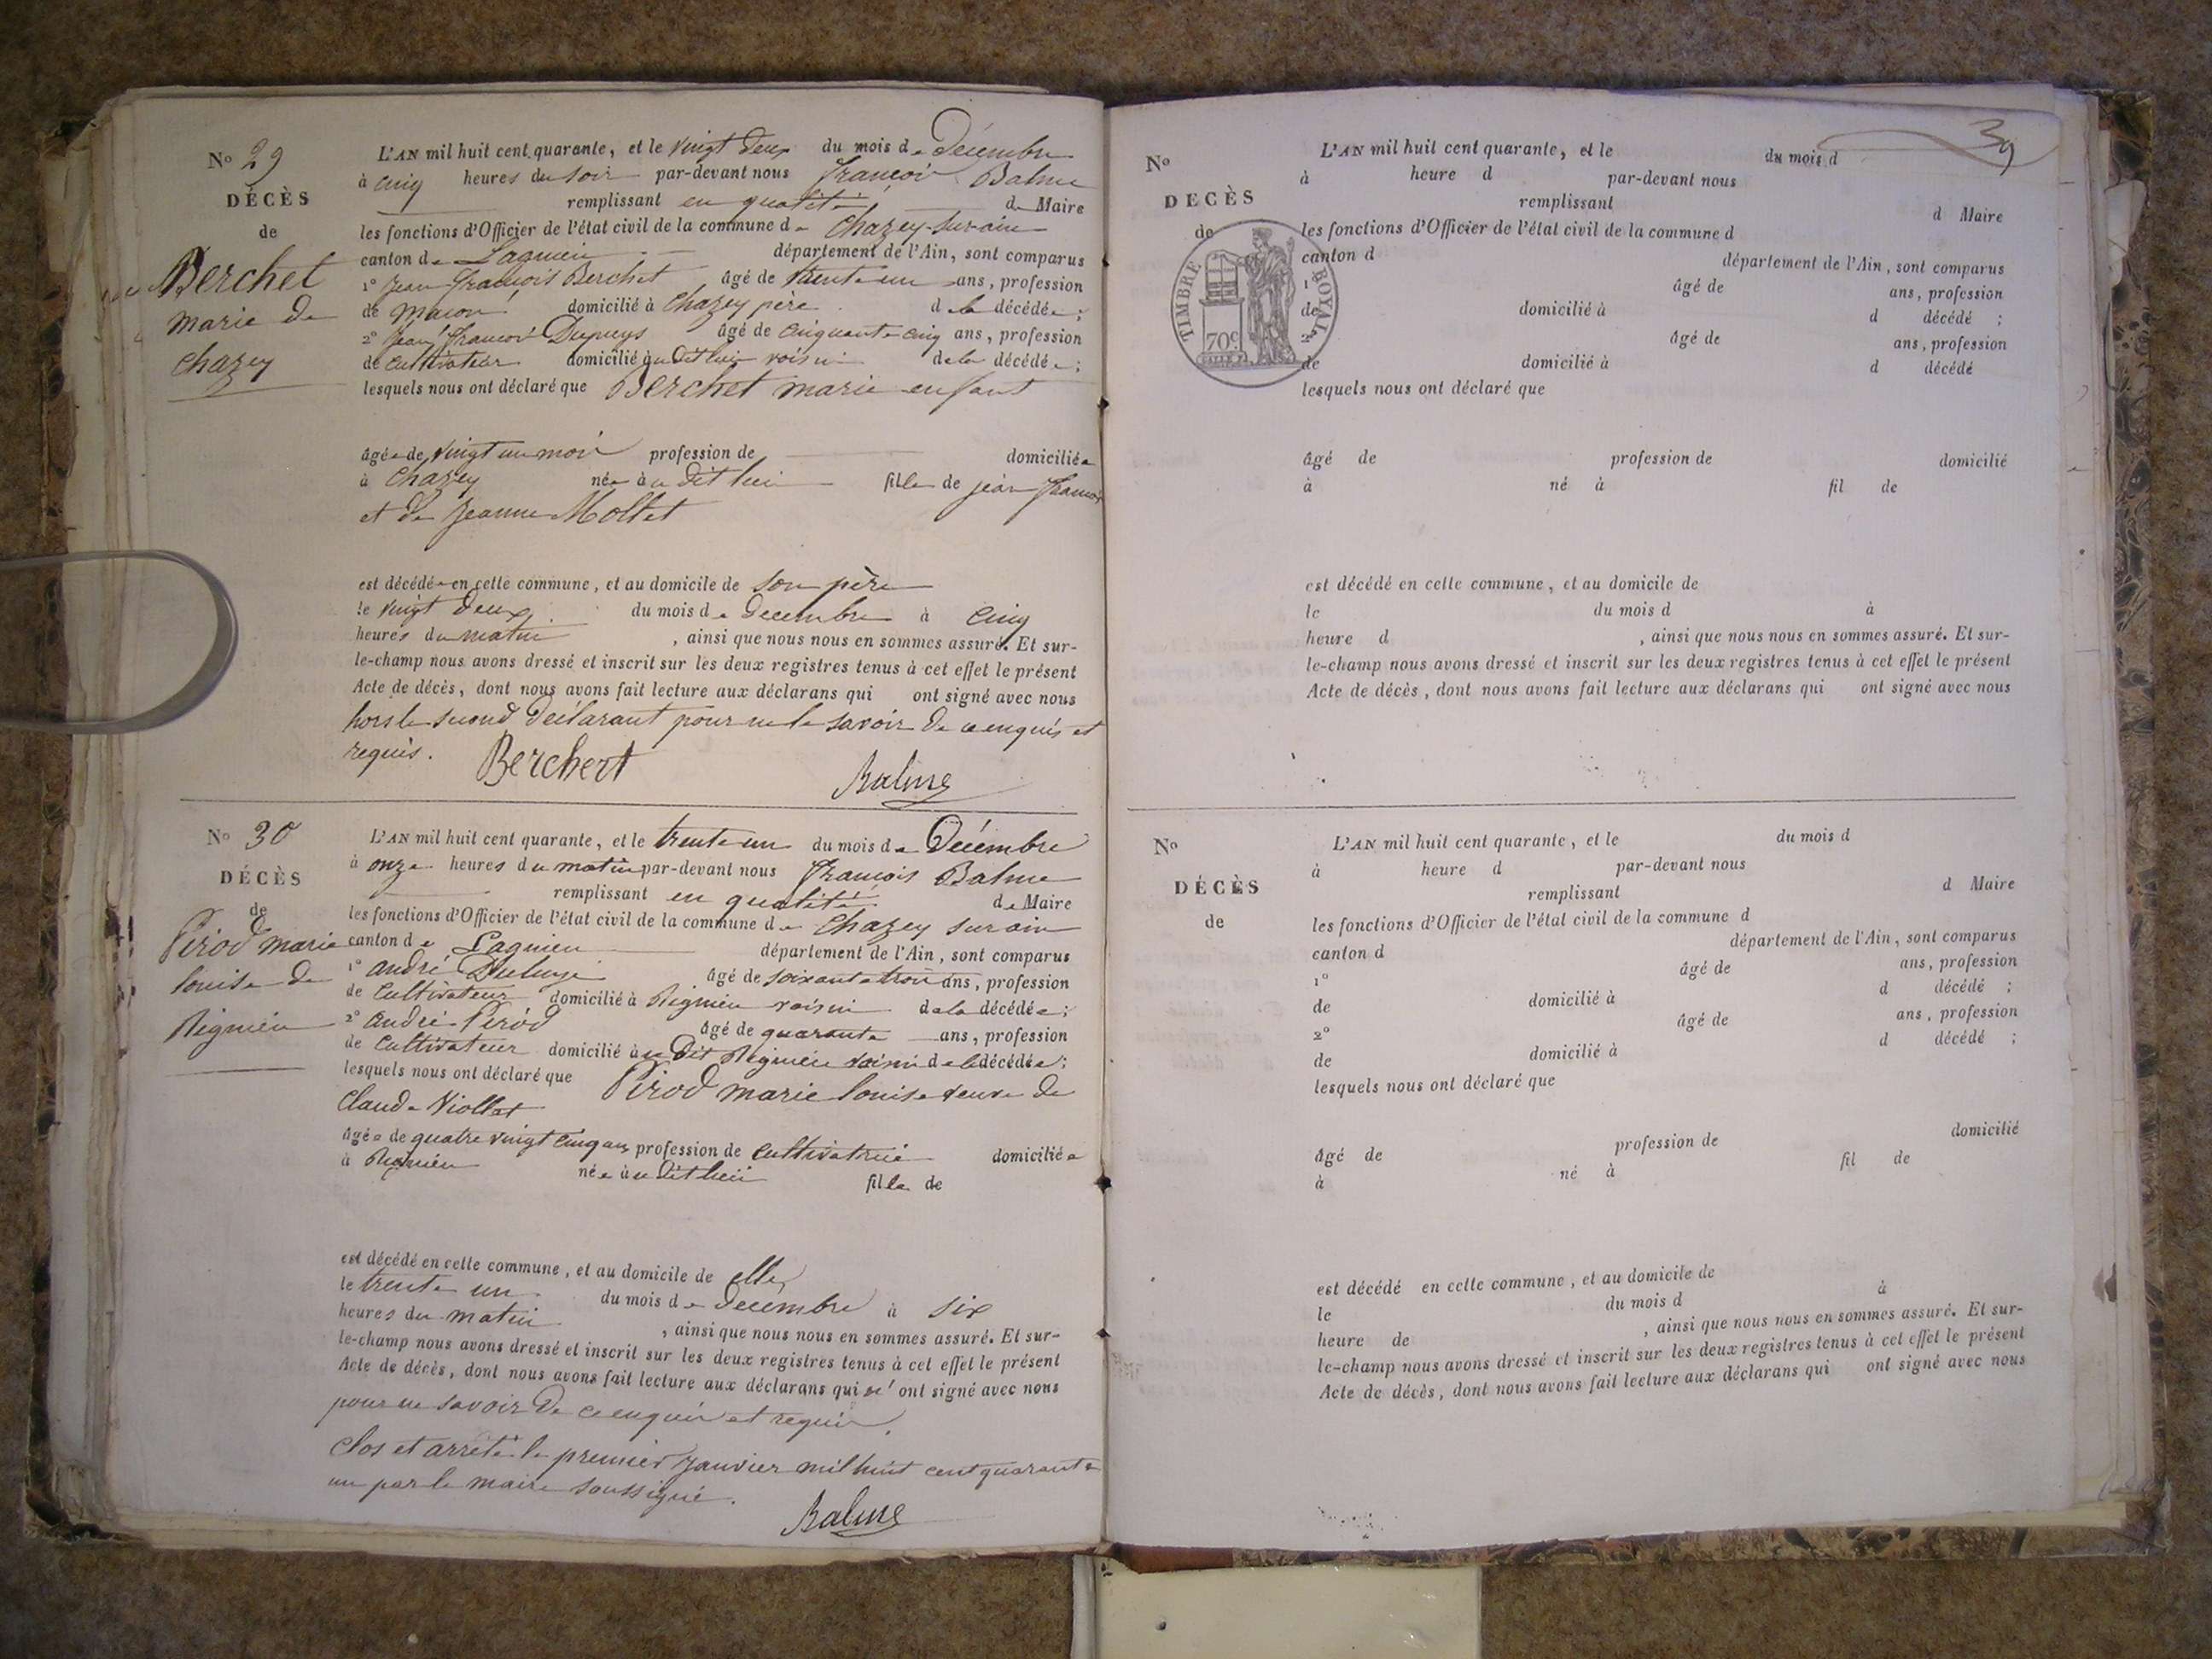 No 29
DÉCÈS
de
Berchet
marie de
chazey
L'AN mil huit cent quarante, et le vingt deux du mois de Décembre
à cinq heures du soir par-devant nous françois Balme
remplissant en qualité de Maire
les fonctions d'Officier de l'état civil de la commune de chazey-sur-ain
canton de Lagnieu département de l'Ain, sont comparus
1° jean françois Berchet âgé de trente un ans, profession
de maçon domicilié à chazey père de la décédée ;
2° jean françois Dupuys âgé de cinquante cinq ans, profession
de cultivateur domicilié au dit lieu voisin de la décédée ;
lesquels nous ont déclaré que Berchet marie enfant
âgée de vingt un mois profession de domiciliée
à chazey née au dit lieu fille de jean françois
et de jeanne Mollet
est décédée en cette commune, et au domicile de son père
le vingt deux du mois de decembre à cinq
heures du matin, ainsi que nous nous en sommes assuré. Et sur-
le-champ nous avons dressé et inscrit sur les deux registres tenus à cet effet le présent
Acte de décès, dont nous avons fait lecture aux déclarans qui ont signé avec nous
hors le second déclarant pour ne le savoir de ce enquis et
requis. Berchert Balme
No 30
DÉCÈS
de
Pérod marie
louise de
Rignieu
L'AN mil huit cent quarante, et le trente un du mois de Décembre
à onze heures du matin par-devant nous françois Balme
remplissant en qualité de Maire
les fonctions d'Officier de l'état civil de la commune de chazey sur ain
canton de Lagnieu département de l'Ain, sont comparus
1° andré âgé de soixante trois ans, profession
de cultivateur domicilié à Rignieu voisin de la décédée ;
2° andré Pérod âgé de quarante ans, profession
de cultivateur domicilié au dit Rignieu voisin de la décédée ;
lesquels nous ont déclaré que Pérod marie louise veuve de
claude Viollet
âgée de quatre vingt cinq ans profession de cultivatrice domiciliée
à Rignieu née au dit lieu fille de
est décédé en cette commune, et au domicile de elle
le trente un du mois de decembre à six
heures du matin, ainsi que nous nous en sommes assuré. Et sur-
le-champ nous avons dressé et inscrit sur les deux registres tenus à cet effet le présent
Acte de décès, dont nous avons fait lecture aux déclarans qui n'ont signé avec nous
pour ne savoir de ce enquis et requis.
clos et arrêté le premier janvier mil huit cent quarante
un par le maire soussigné.
Balme
39
No
DECÈS
de
TIMBRE ROYAL
70c
L'AN mil huit cent quarante, et le du mois d
à heure d par-devant nous
remplissant d Maire
les fonctions d'Officier de l'état civil de la commune d
canton d département de l'Ain, sont comparus
1° âgé de ans, profession
de domicilié à d décédé ;
2° âgé de ans, profession
de domicilié à d décédé
lesquels nous ont déclaré que
âgé de profession de domicilié
à né à fil de
est décédé en cette commune, et au domicile de
le du mois d à
heure d , ainsi que nous nous en sommes assuré. Et sur-
le-champ nous avons dressé et inscrit sur les deux registres tenus à cet effet le présent
Acte de décès, dont nous avons fait lecture aux déclarans qui ont signé avec nous
No
DÉCÈS
de
L'AN mil huit cent quarante, et le du mois d
à heure d par-devant nous
remplissant d Maire
les fonctions d'Officier de l'état civil de la commune d
canton d département de l'Ain, sont comparus
1° âgé de ans, profession
de domicilié à d décédé ;
2° âgé de ans, profession
de domicilié à d décédé ;
lesquels nous ont déclaré que
âgé de profession de domicilié
à né à fil de
est décédé en cette commune, et au domicile de
le du mois d à
heure de , ainsi que nous nous en sommes assuré. Et sur-
le-champ nous avons dressé et inscrit sur les deux registres tenus à cet effet le présent
Acte de décès, dont nous avons fait lecture aux déclarans qui ont signé avec nous